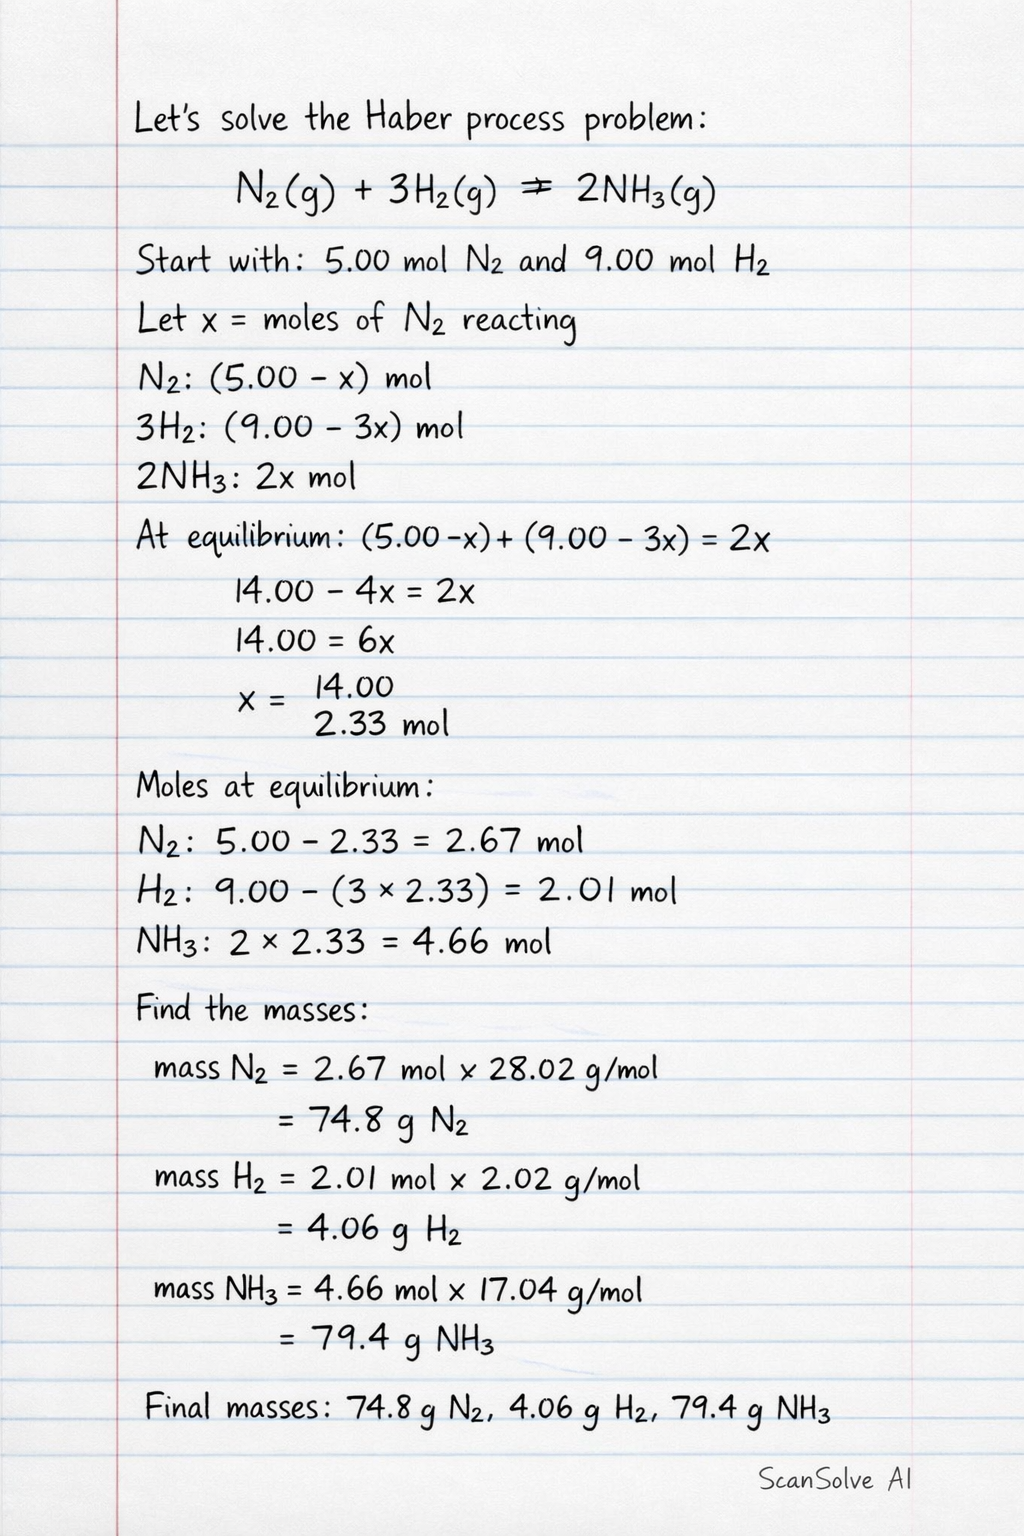 Let's solve the Haber process problem:
N₂(g) + 3H₂(g) ⇌ 2NH₃(g)
Start with: 5.00 mol N₂ and 9.00 mol H₂
Let x = moles of N₂ reacting
N₂: (5.00 - x) mol
3H₂: (9.00 - 3x) mol
2NH₃: 2x mol
At equilibrium: (5.00 - x) + (9.00 - 3x) = 2x
14.00 - 4x = 2x
14.00 = 6x
x = 14.00
2.33 mol
Moles at equilibrium:
N₂: 5.00 - 2.33 = 2.67 mol
H₂: 9.00 - (3 × 2.33) = 2.01 mol
NH₃: 2 × 2.33 = 4.66 mol
Find the masses:
mass N₂ = 2.67 mol × 28.02 g/mol
= 74.8 g N₂
mass H₂ = 2.01 mol × 2.02 g/mol
= 4.06 g H₂
mass NH₃ = 4.66 mol × 17.04 g/mol
= 79.4 g NH₃
Final masses: 74.8 g N₂, 4.06 g H₂, 79.4 g NH₃
ScanSolve AI